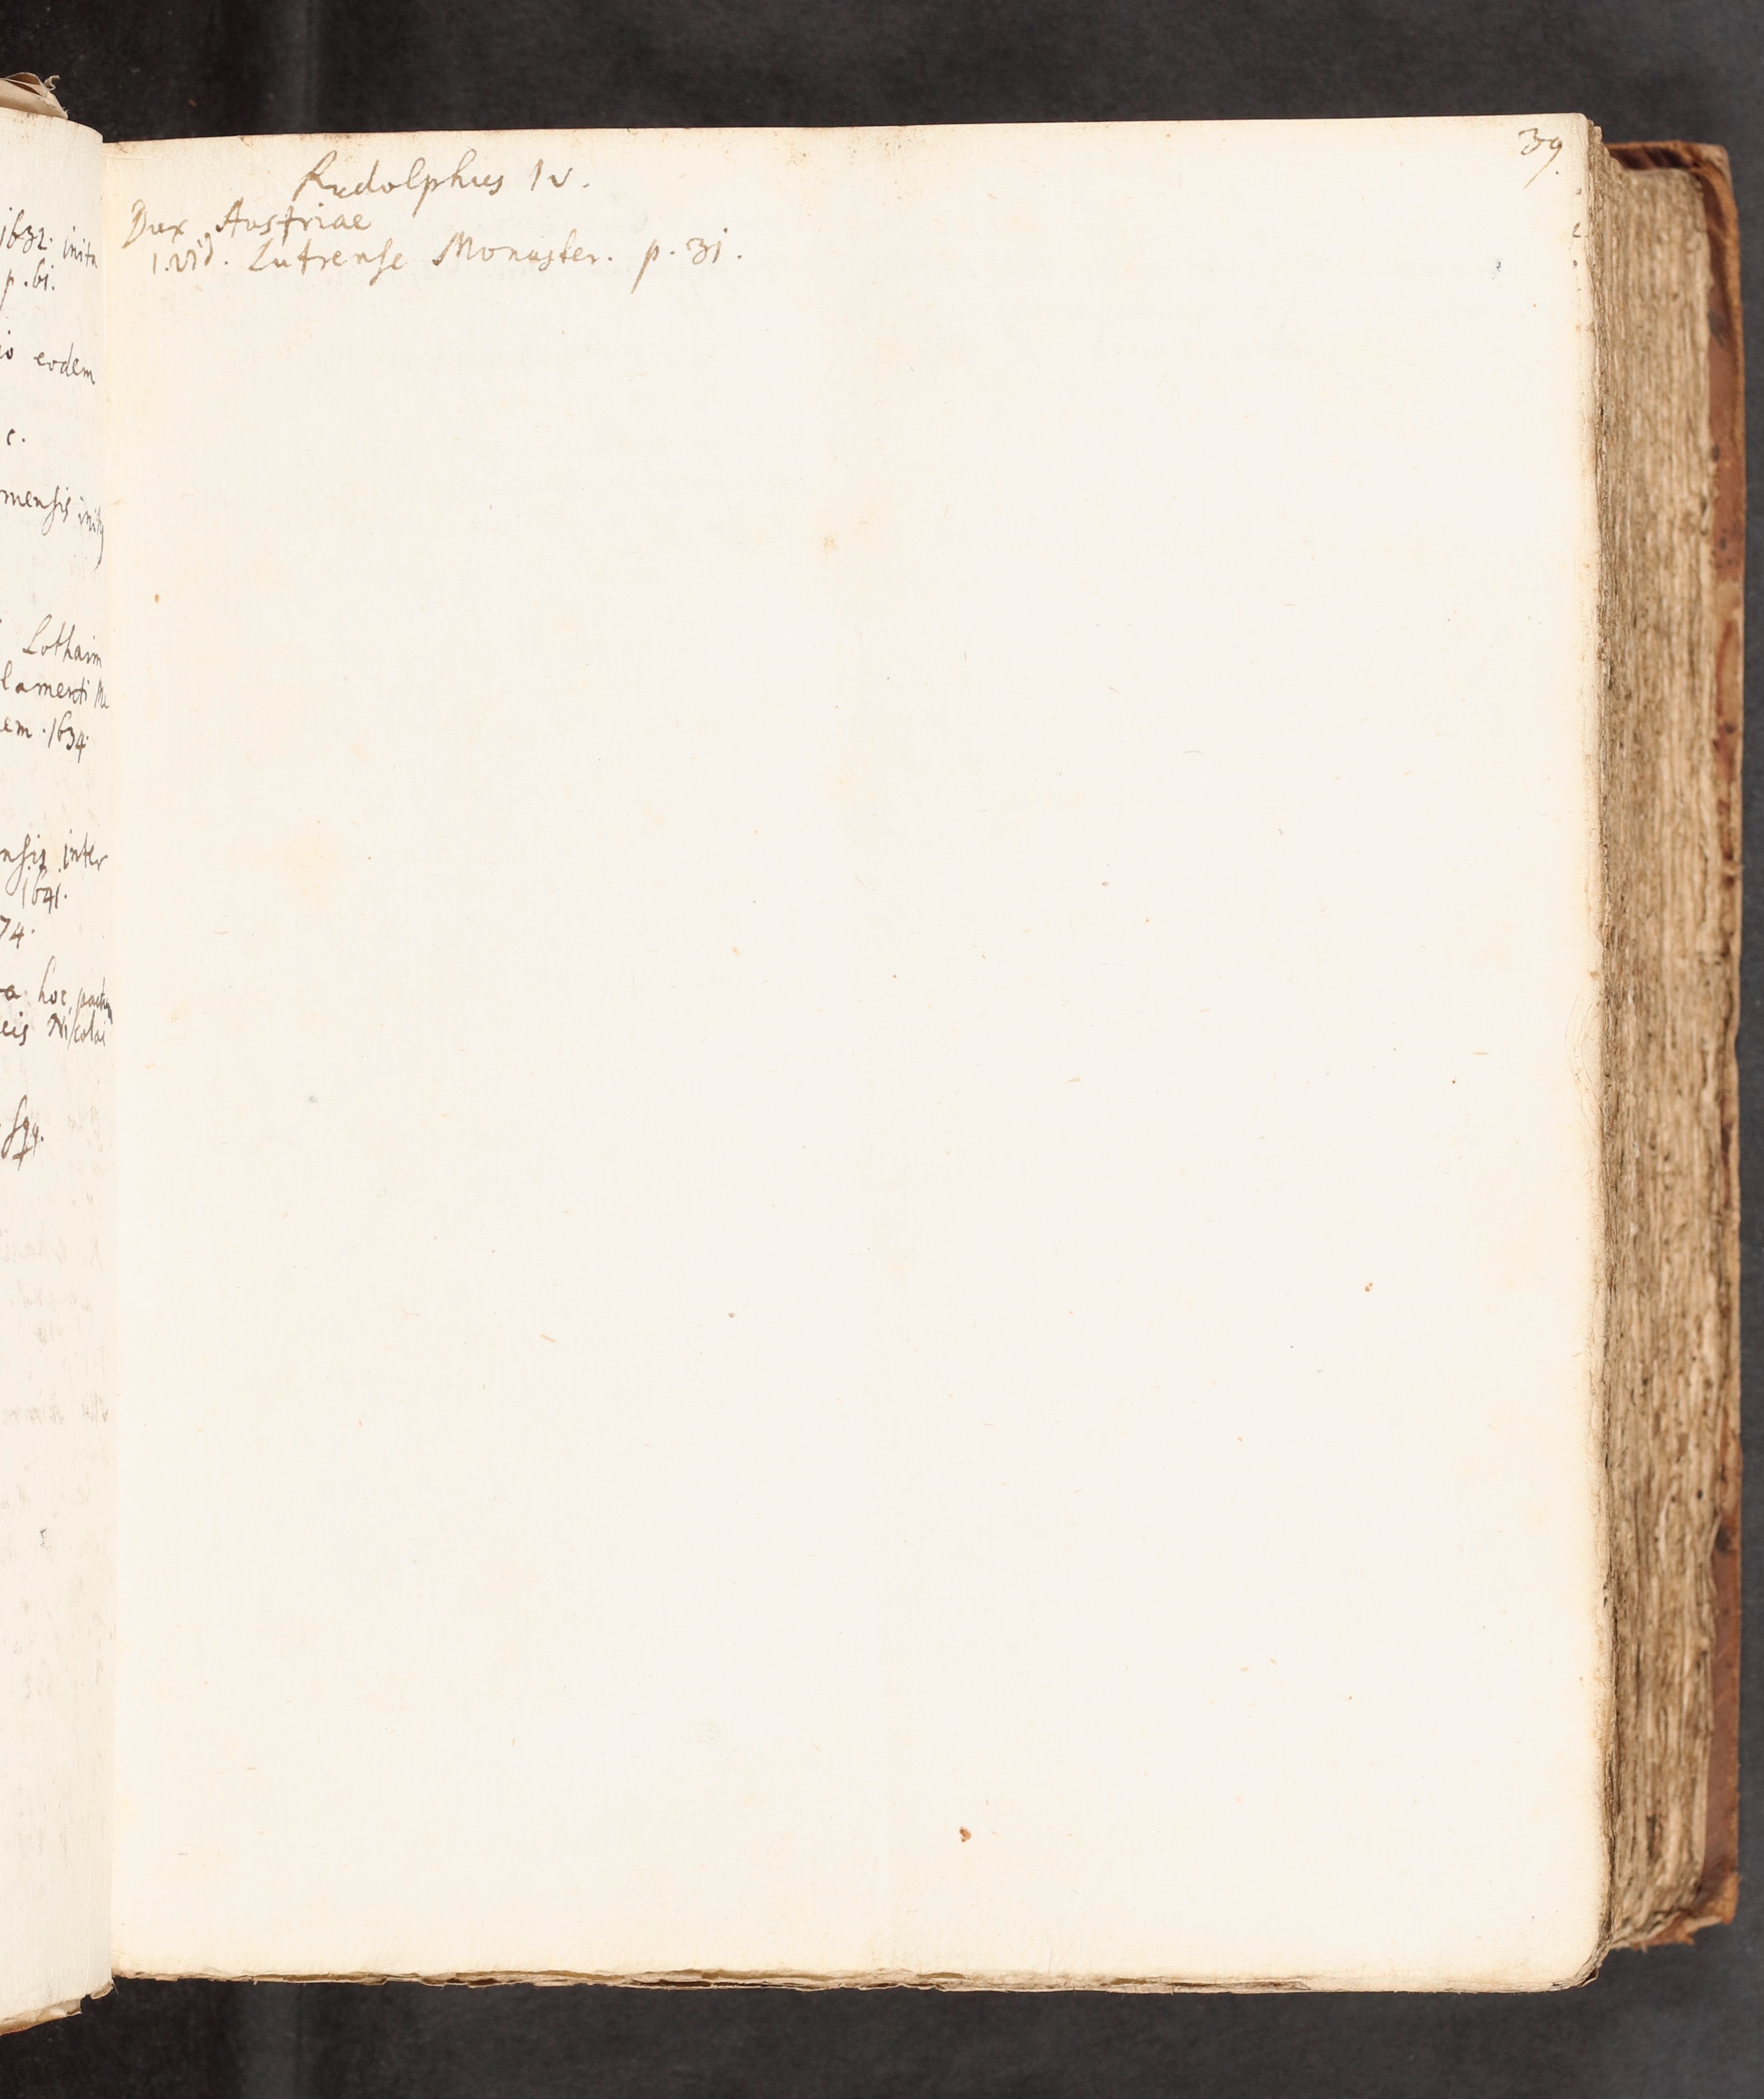 1632. initu
p. 61.
io eodem
c.
mensis initj
Lotharin
lamenti Me
em. 1634.
ensis inter
1641.
74.
ra hoc pactum
cis Nicolai
sqq.
39.
Rudolphus IV.
Dux Austriae
1. vid. Lutrense Monaster. p. 31.